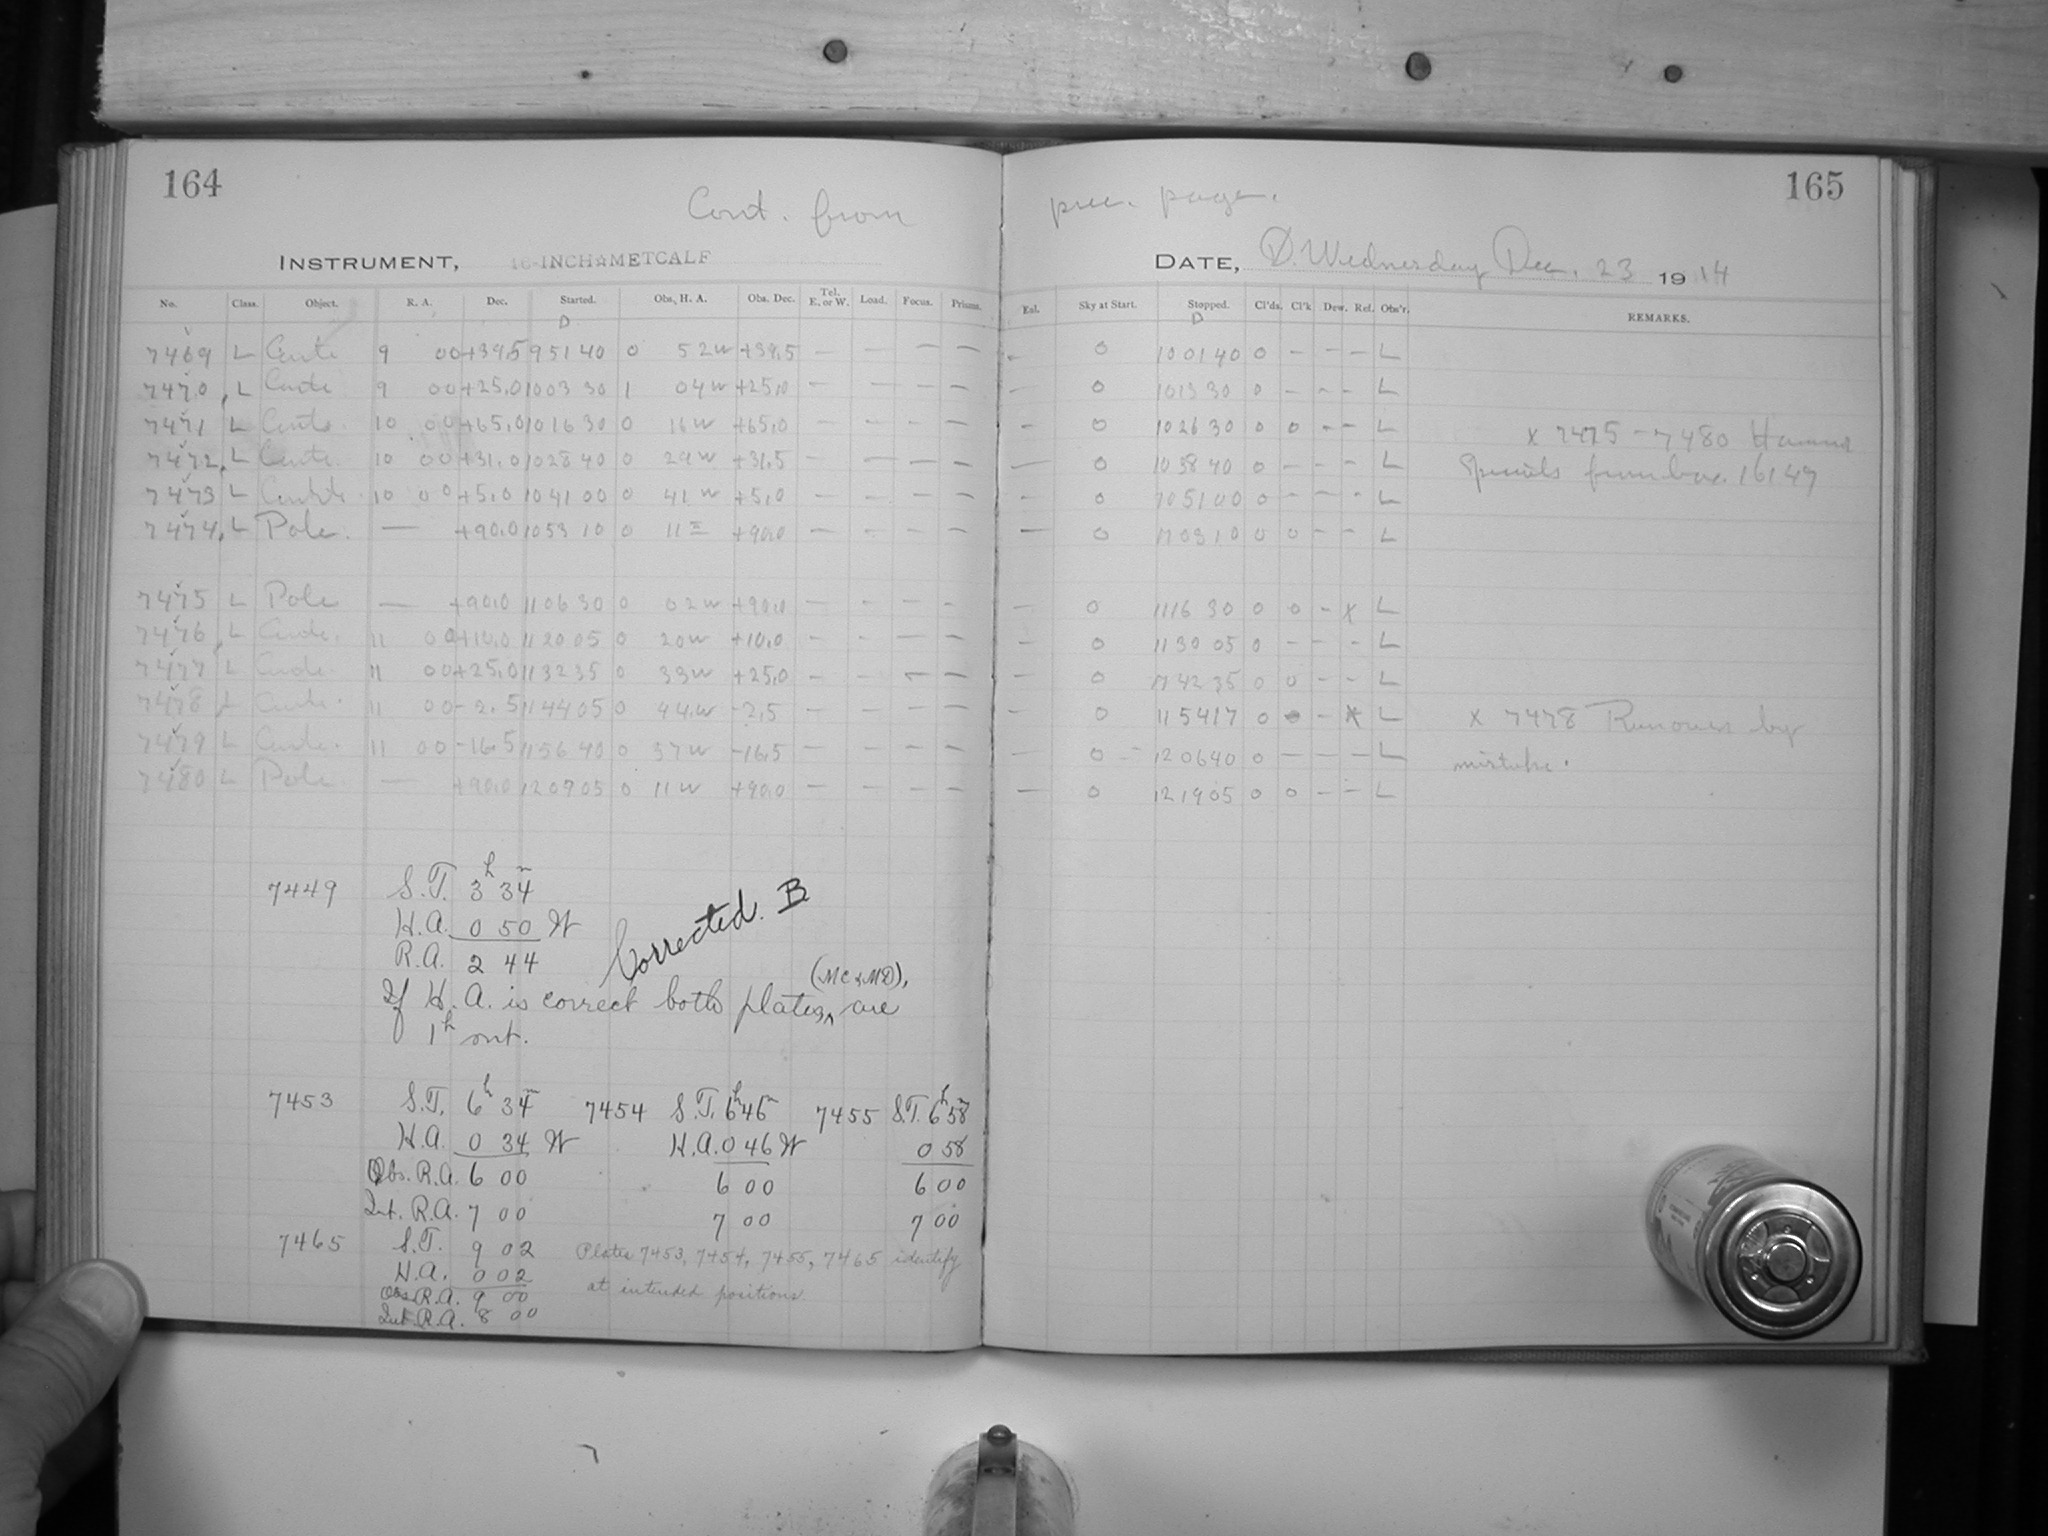 164
165
Cont. from prec. page.
INSTRUMENT, 16-INCH☆METCALF
DATE, D. Wednesday Dec. 23 1914
No. Class. Object. R. A. Dec. Started. Obs, H. A. Obs. Dec. Tel. E. or W. Load. Focus. Prisms. Exl. Sky at Start. Stopped. Cl'ds. Cl'k Dew. Ref. Obs'r. REMARKS.
D D
7469 L 9 00 +39.5 9 51 40 0 52 W +39.5 — — — — — 0 10 01 40 0 — — — L
7470 L 9 00 +25.0 10 03 30 1 04 W +25.0 — — — — — 0 10 13 30 0 — — — L
7471 L 10 00 +65.0 10 16 30 0 16 W +65.0 — — — — — 0 10 26 30 0 0 — — L
7472 L 10 00 +31.0 10 28 40 0 29 W +31.5 — — — — — 0 10 38 40 0 — — — L
7473 L 10 00 +5.0 10 41 00 0 41 W +5.0 — — — — — 0 10 51 00 0 — — — L
7474 L Pole. — +90.0 10 53 10 0 11 E +90.0 — — — — — 0 11 03 10 0 0 — — L
7475 L Pole — +90.0 11 06 30 0 02 W +90.0 — — — — — 0 11 16 30 0 0 — x L
7476 L 11 00 +10.0 11 20 05 0 20 W +10.0 — — — — — 0 11 30 05 0 — — — L
7477 L 11 00 +25.0 11 32 35 0 33 W +25.0 — — — — — 0 11 42 35 0 0 — — L
7478 L 11 00 -2.5 11 44 05 0 44 W -2.5 — — — — — 0 11 54 17 0 — x L
7479 L 11 00 -16.5 11 56 40 0 37 W -16.5 — — — — — 0 12 06 40 0 — — — L
7480 L Pole. — +90.0 12 09 05 0 11 W +90.0 — — — — — 0 12 19 05 0 0 — — L
x 7475 - 7480
from box 16147
x 7478 by
mistake.
7449 S.T. 3h 34m
H.A. 0 50 W
R.A. 2 44
Corrected. B
If H.A. is correct both plates (MC & MD), are
1h out.
7453 S.T. 6h 34m 7454 S.T. 6h 46m 7455 S.T. 6h 58m
H.A. 0 34 W H.A. 0 46 W 0 58
Obs. R.A. 6 00 6 00 6 00
Int. R.A. 7 00 7 00 7 00
7465 S.T. 9 02 Plates 7453, 7454, 7455, 7465 identify
H.A. 0 02 at intended positions.
Obs. R.A. 9 00
Int. R.A. 8 00